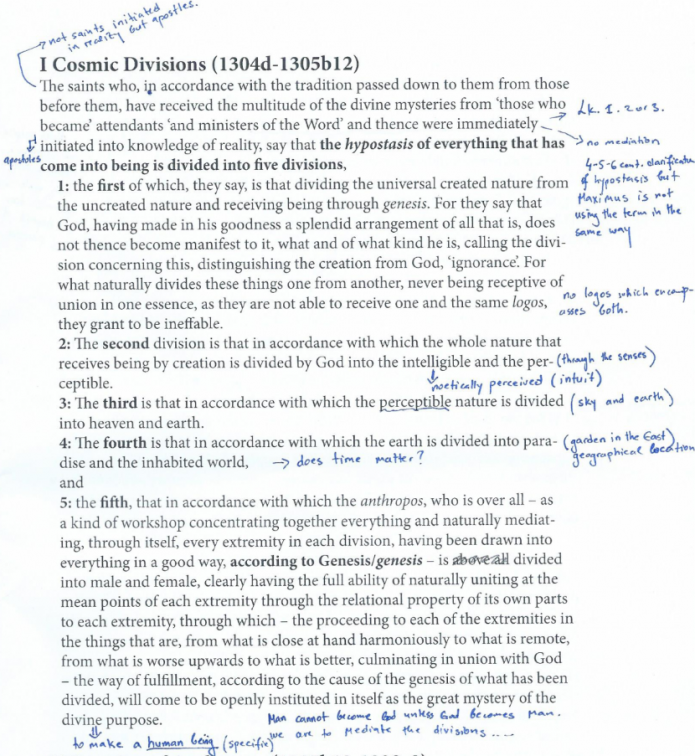 not saints initiated
in reality but apostles.
I Cosmic Divisions (1304d-1305b12)
The saints who, in accordance with the tradition passed down to them from those
before them, have received the multitude of the divine mysteries from ‘those who
became’ attendants ‘and ministers of the Word’ and thence were immediately
Lk. 1. 2 or 3.
initiated into knowledge of reality, say that the hypostasis of everything that has
apostles
no mediation
come into being is divided into five divisions,
4-5-6 cent. clarification
of hypostasis but
Maximus is not
using the term in the
same way
1: the first of which, they say, is that dividing the universal created nature from
the uncreated nature and receiving being through genesis. For they say that
God, having made in his goodness a splendid arrangement of all that is, does
not thence become manifest to it, what and of what kind he is, calling the divi-
sion concerning this, distinguishing the creation from God, ‘ignorance’. For
what naturally divides these things one from another, never being receptive of
union in one essence, as they are not able to receive one and the same logos,
they grant to be ineffable.
no logos which encomp-
asses both.
2: The second division is that in accordance with which the whole nature that
receives being by creation is divided by God into the intelligible and the per- (through the senses)
ceptible.
noetically perceived (intuit)
3: The third is that in accordance with which the perceptible nature is divided (sky and earth)
into heaven and earth.
4: The fourth is that in accordance with which the earth is divided into para- (garden in the East)
dise and the inhabited world, → does time matter?
geographical location
and
5: the fifth, that in accordance with which the anthropos, who is over all – as
a kind of workshop concentrating together everything and naturally mediat-
ing, through itself, every extremity in each division, having been drawn into
everything in a good way, according to Genesis/genesis – is above all divided
into male and female, clearly having the full ability of naturally uniting at the
mean points of each extremity through the relational property of its own parts
to each extremity, through which – the proceeding to each of the extremities in
the things that are, from what is close at hand harmoniously to what is remote,
from what is worse upwards to what is better, culminating in union with God
– the way of fulfillment, according to the cause of the genesis of what has been
divided, will come to be openly instituted in itself as the great mystery of the
divine purpose.
Man cannot become God unless God becomes Man.
to make a human being (specific)
we are to Mediate the divisions ....